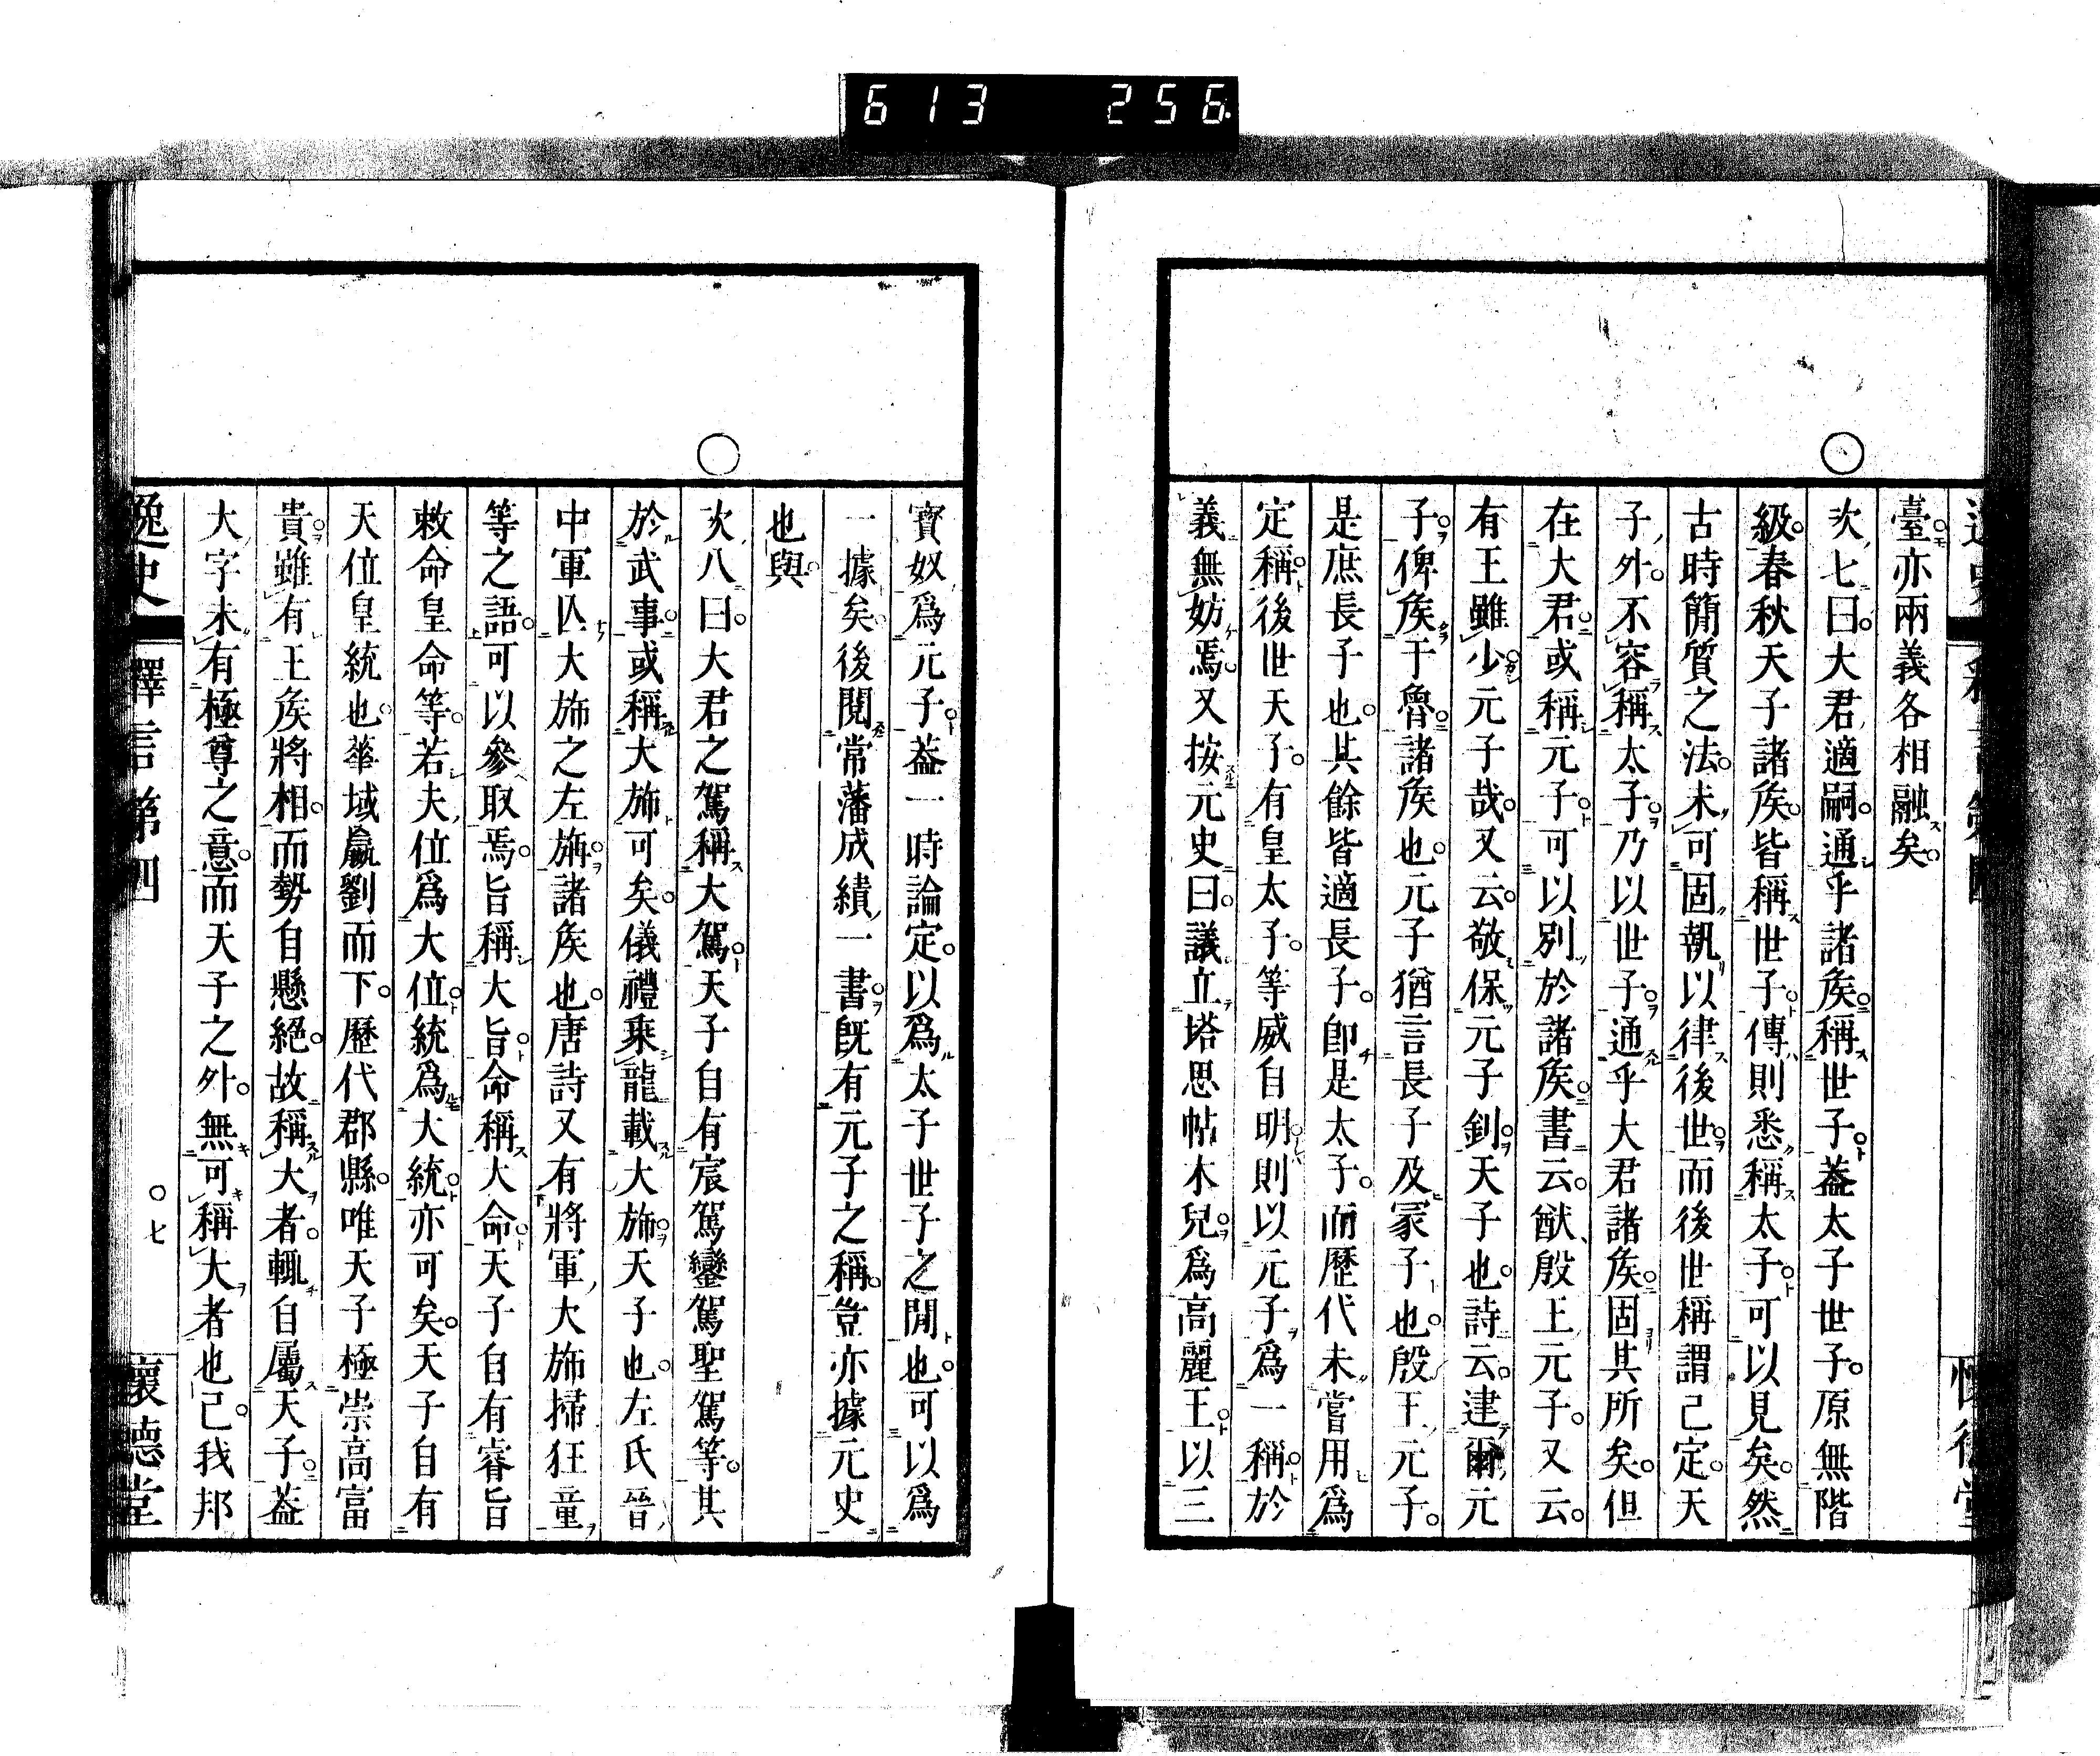 613 256
臺亦兩義各相融矣
○
次七曰大君適嗣通乎諸矦稱世子葢太子世子原無階
級春秋天子諸矦皆稱世子傳則悉稱太子可以見矣然
古時簡質之法未可固執以律後世而後世稱謂已定天
子外不容稱太子乃以世子通乎大君諸矦固其所矣但
在大君或稱元子可以別於諸矦書云猷殷王元子又云
有王雖少元子哉又云敬保元子釗天子也詩云建爾元
子俾矦于魯諸矦也元子猶言長子及冢子也殷王元子
是庶長子也其餘皆適長子卽是太子而歷代未嘗用爲
定稱後世天子有皇太子等威自明則以元子爲一稱於
義無妨焉又按元史曰議立塔思帖木兒爲高麗王以三
寶奴爲元子葢一時論定以爲太子世子之閒也可以爲
一據矣後閱常藩成績一書旣有元子之稱豈亦據元史
也與
○
次八曰大君之駕稱大駕天子自有宸駕鑾駕聖駕等其
於武事或稱大斾可矣儀禮乘龍載大斾天子也左氏晉
中軍亾大斾之左旃諸矦也唐詩又有將軍大斾掃狂童
等之語可以參取焉旨稱大旨命稱大命天子自有睿旨
敕命皇命等若夫位爲大位統爲大統亦可矣天子自有
天位皇統也華域嬴劉而下歷代郡縣唯天子極崇高富
貴雖有王矦將相而勢自懸絕故稱大者輒自屬天子葢
大字未有極尊之意而天子之外無可稱大者也已我邦
逸史 釋言第四 ○七 懷德堂